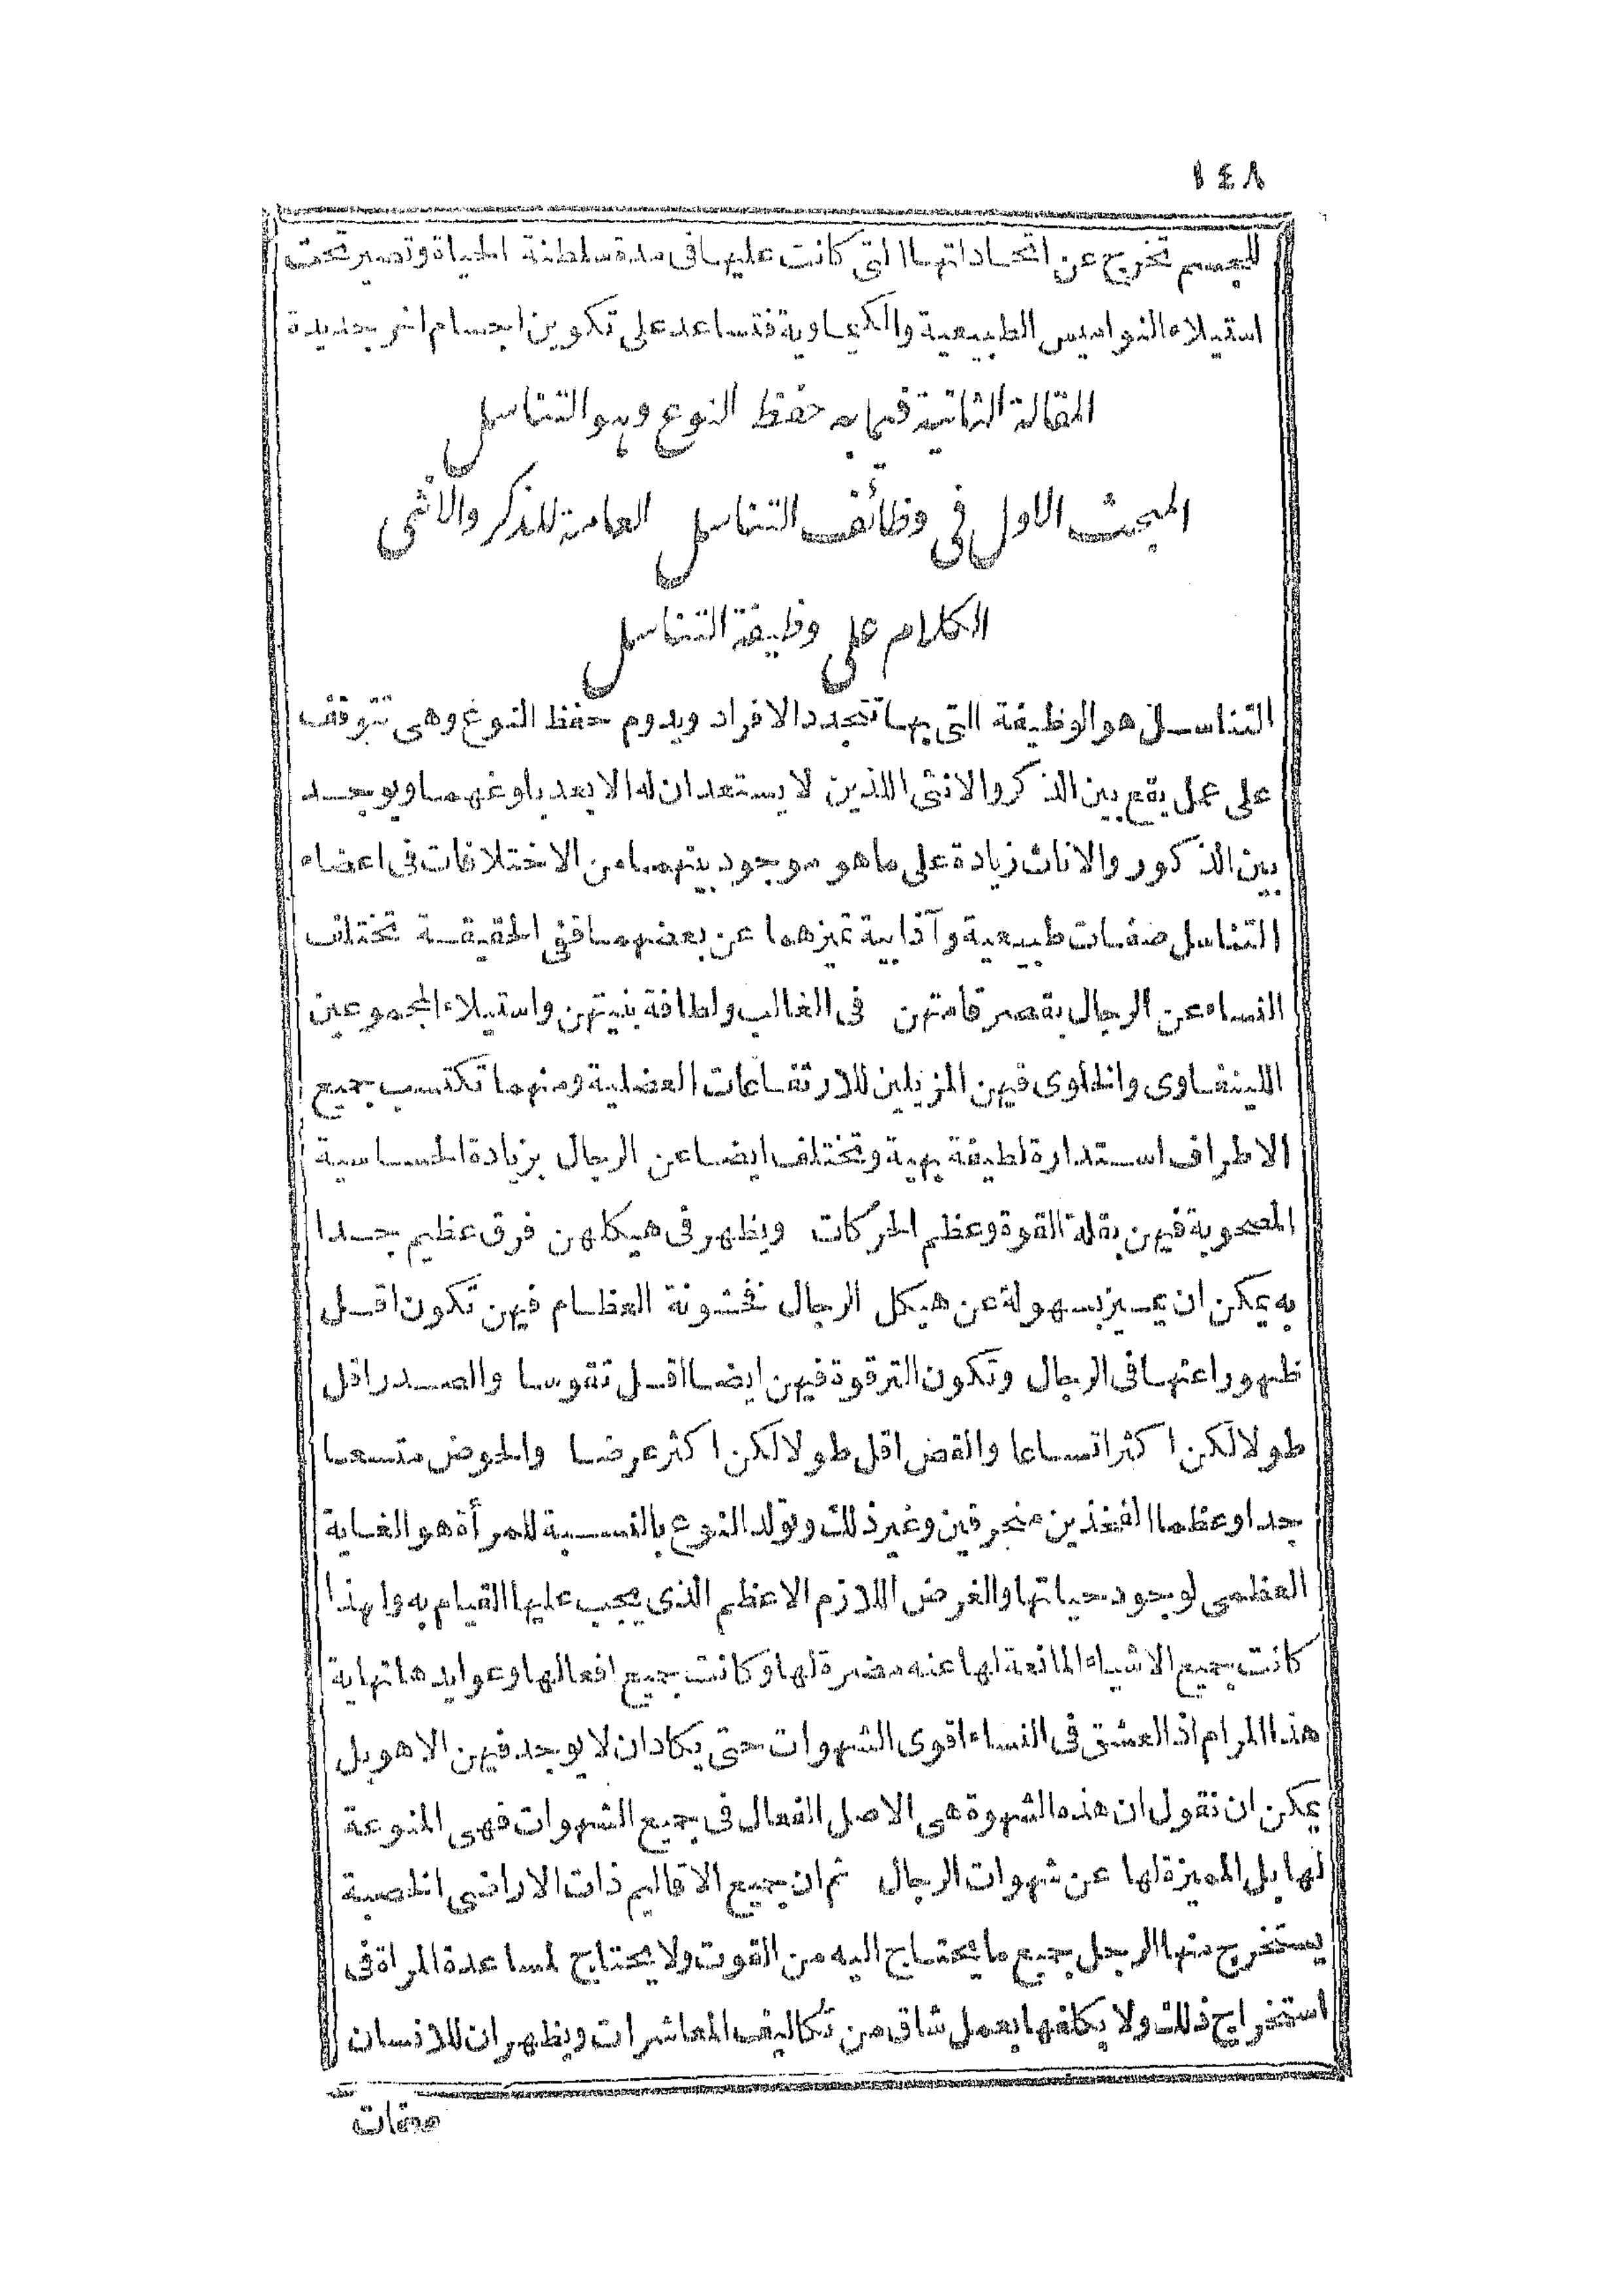 ١٤٨
للجسم تخرج عن اتحاداتها التى كانت عليها فى مدة سلطنة الحياة وتصير تحت
استيلاء النواميس الطبيعية والكيماوية فتساعد على تكوين اجسام اخر جديدة
المقالة الثانية فيما به حفظ النوع وهو التناسل
المبحث الاول فى وظائف التناسل العامة للذكر والانثى
الكلام على وظيفة التناسل
التناسل هو الوظيفة التى بها تتجدد الافراد ويدوم حفظ النوع وهى تتوقف
على عمل يقع بين الذكر والانثى اللذين لا يستعدان له الا بعد بلوغهما ويوجد
بين الذكور والاناث زيادة على ما هو موجود بينهما من الاختلافات فى اعضاء
التناسل صفات طبيعية وآدابية تميزهما عن بعضهما ففى الحقيقة تختلف
النساء عن الرجال بقصر قامتهن فى الغالب ولطافة بنيتهن واستيلاء المجموعين
اللينفاوى والخلوى فيهن المزيلين للارتفاعات العضلية ومنهما تكتسب جميع
الاطراف استدارة لطيفة بهية وتختلف ايضا عن الرجال بزيادة الحساسية
المصحوبة فيهن بقلة القوة وعظم الحركات ويظهر فى هيكلهن فرق عظيم جدا
به يمكن ان يميز بسهولة عن هيكل الرجال فخشونة العظام فيهن تكون اقل
ظهورا عنها فى الرجال وتكون الترقوة فيهن ايضا اقل تقوسا والصدر اقل
طولا لكن اكثر اتساعا والقص اقل طولا لكن اكثر عرضا والحوض متسعا
جدا وعظما الفخذين منحرفين وغير ذلك وتولد النوع بالنسبة للمرأة هو الغاية
العظمى لوجود حياتها والغرض اللازم الاعظم الذى يجب عليها القيام به ولهذا
كانت جميع الاشياء المانعة لها عنه مضرة لها وكانت جميع افعالها وعوايدها نهاية
هذا المرام اذ العشق فى النساء اقوى الشهوات حتى يكاد ان لا يوجد فيهن الا هو بل
يمكن ان نقول ان هذه الشهوة هى الاصل الفعال فى جميع الشهوات فهى المنوعة
لها بل المميزة لها عن شهوات الرجال ثم ان جميع الاقاليم ذات الاراضى الخصبة
يستخرج منها الرجل جميع ما يحتاج اليه من القوت ولا يحتاج لمساعدة المراة فى
استخراج ذلك ولا يكلفها بعمل شاق من تكاليف المعاشرات ويظهر ان للانسان